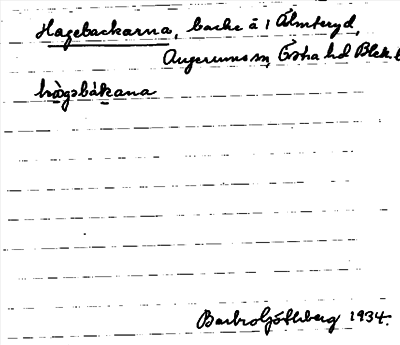 Hagebackarna, backe å 1 Älmteryd,
Augerums sn, Östra hd Blek. l
hàgabàkana
Barbro Göthberg 1934.